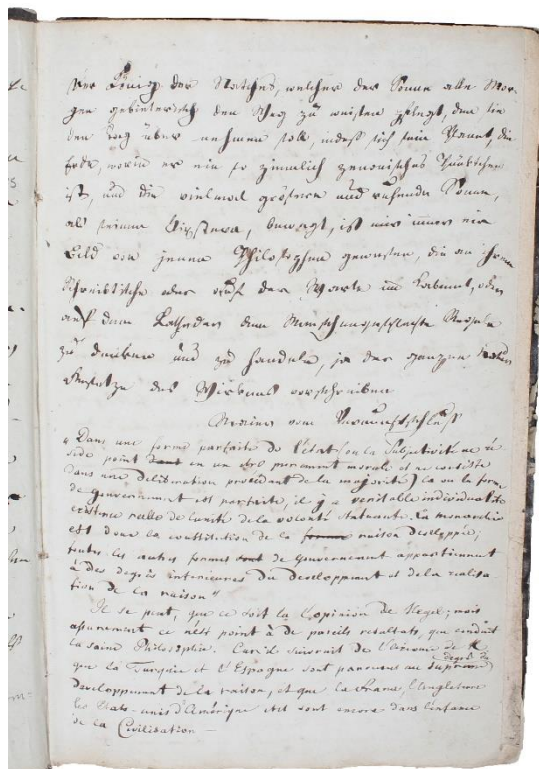 Der König der Natches, welcher der Sonne alle Mor-
gen gebieterisch den Weg zu weisen pflegt, den sie
den Tag über nehmen soll, indeß sich sein Planet, die
Erde, worin er ein so ziemlich zenonisches Pünktchen
ist, um die vielmal größere und ruhende Sonne,
als seinen, bewegt, ist mir immer ein
Bild von jenen Philosophen gewesen, die an ihrem
Schreibtische oder auf der Warte im Kabinet, oder
auf dem Katheder dem Menschengeschlechte Regeln
zu denken und zu handeln, ja der ganzen Natur
Gesetze des Wirkens vorschreiben
vom Vernunftschluß
"Dans une forme parfaite de l'état (ou la Subjectivité ne ré
side point en un purement morale et ne consiste
dans une déliberation procédant de la majorité) la ou la forme
de gouvernement est parfaite, il y a veritable individualité
existence reelle de l'unité de la volonté statuant. La monarchie
est donc la constitution de la forme raison developpée;
toutes les autres formes de gouvernement appartiennent
à des degrés inferieures du developpment et de la realisa
tion de la raison"
Il se peut, que ce soit la l'opinion de Hegel; mais
assurement ce n'est point à de pareils resultats, que conduit
la saine Philosophie. Car il suivrait de
que la Turquie et l'Espagne sont parvenus au supreme degré de
developpment de la raison, et que la France, l'Angleterre
les Etats-unis d'Amérique sont encore dans l'enfance
de la Civilisation —